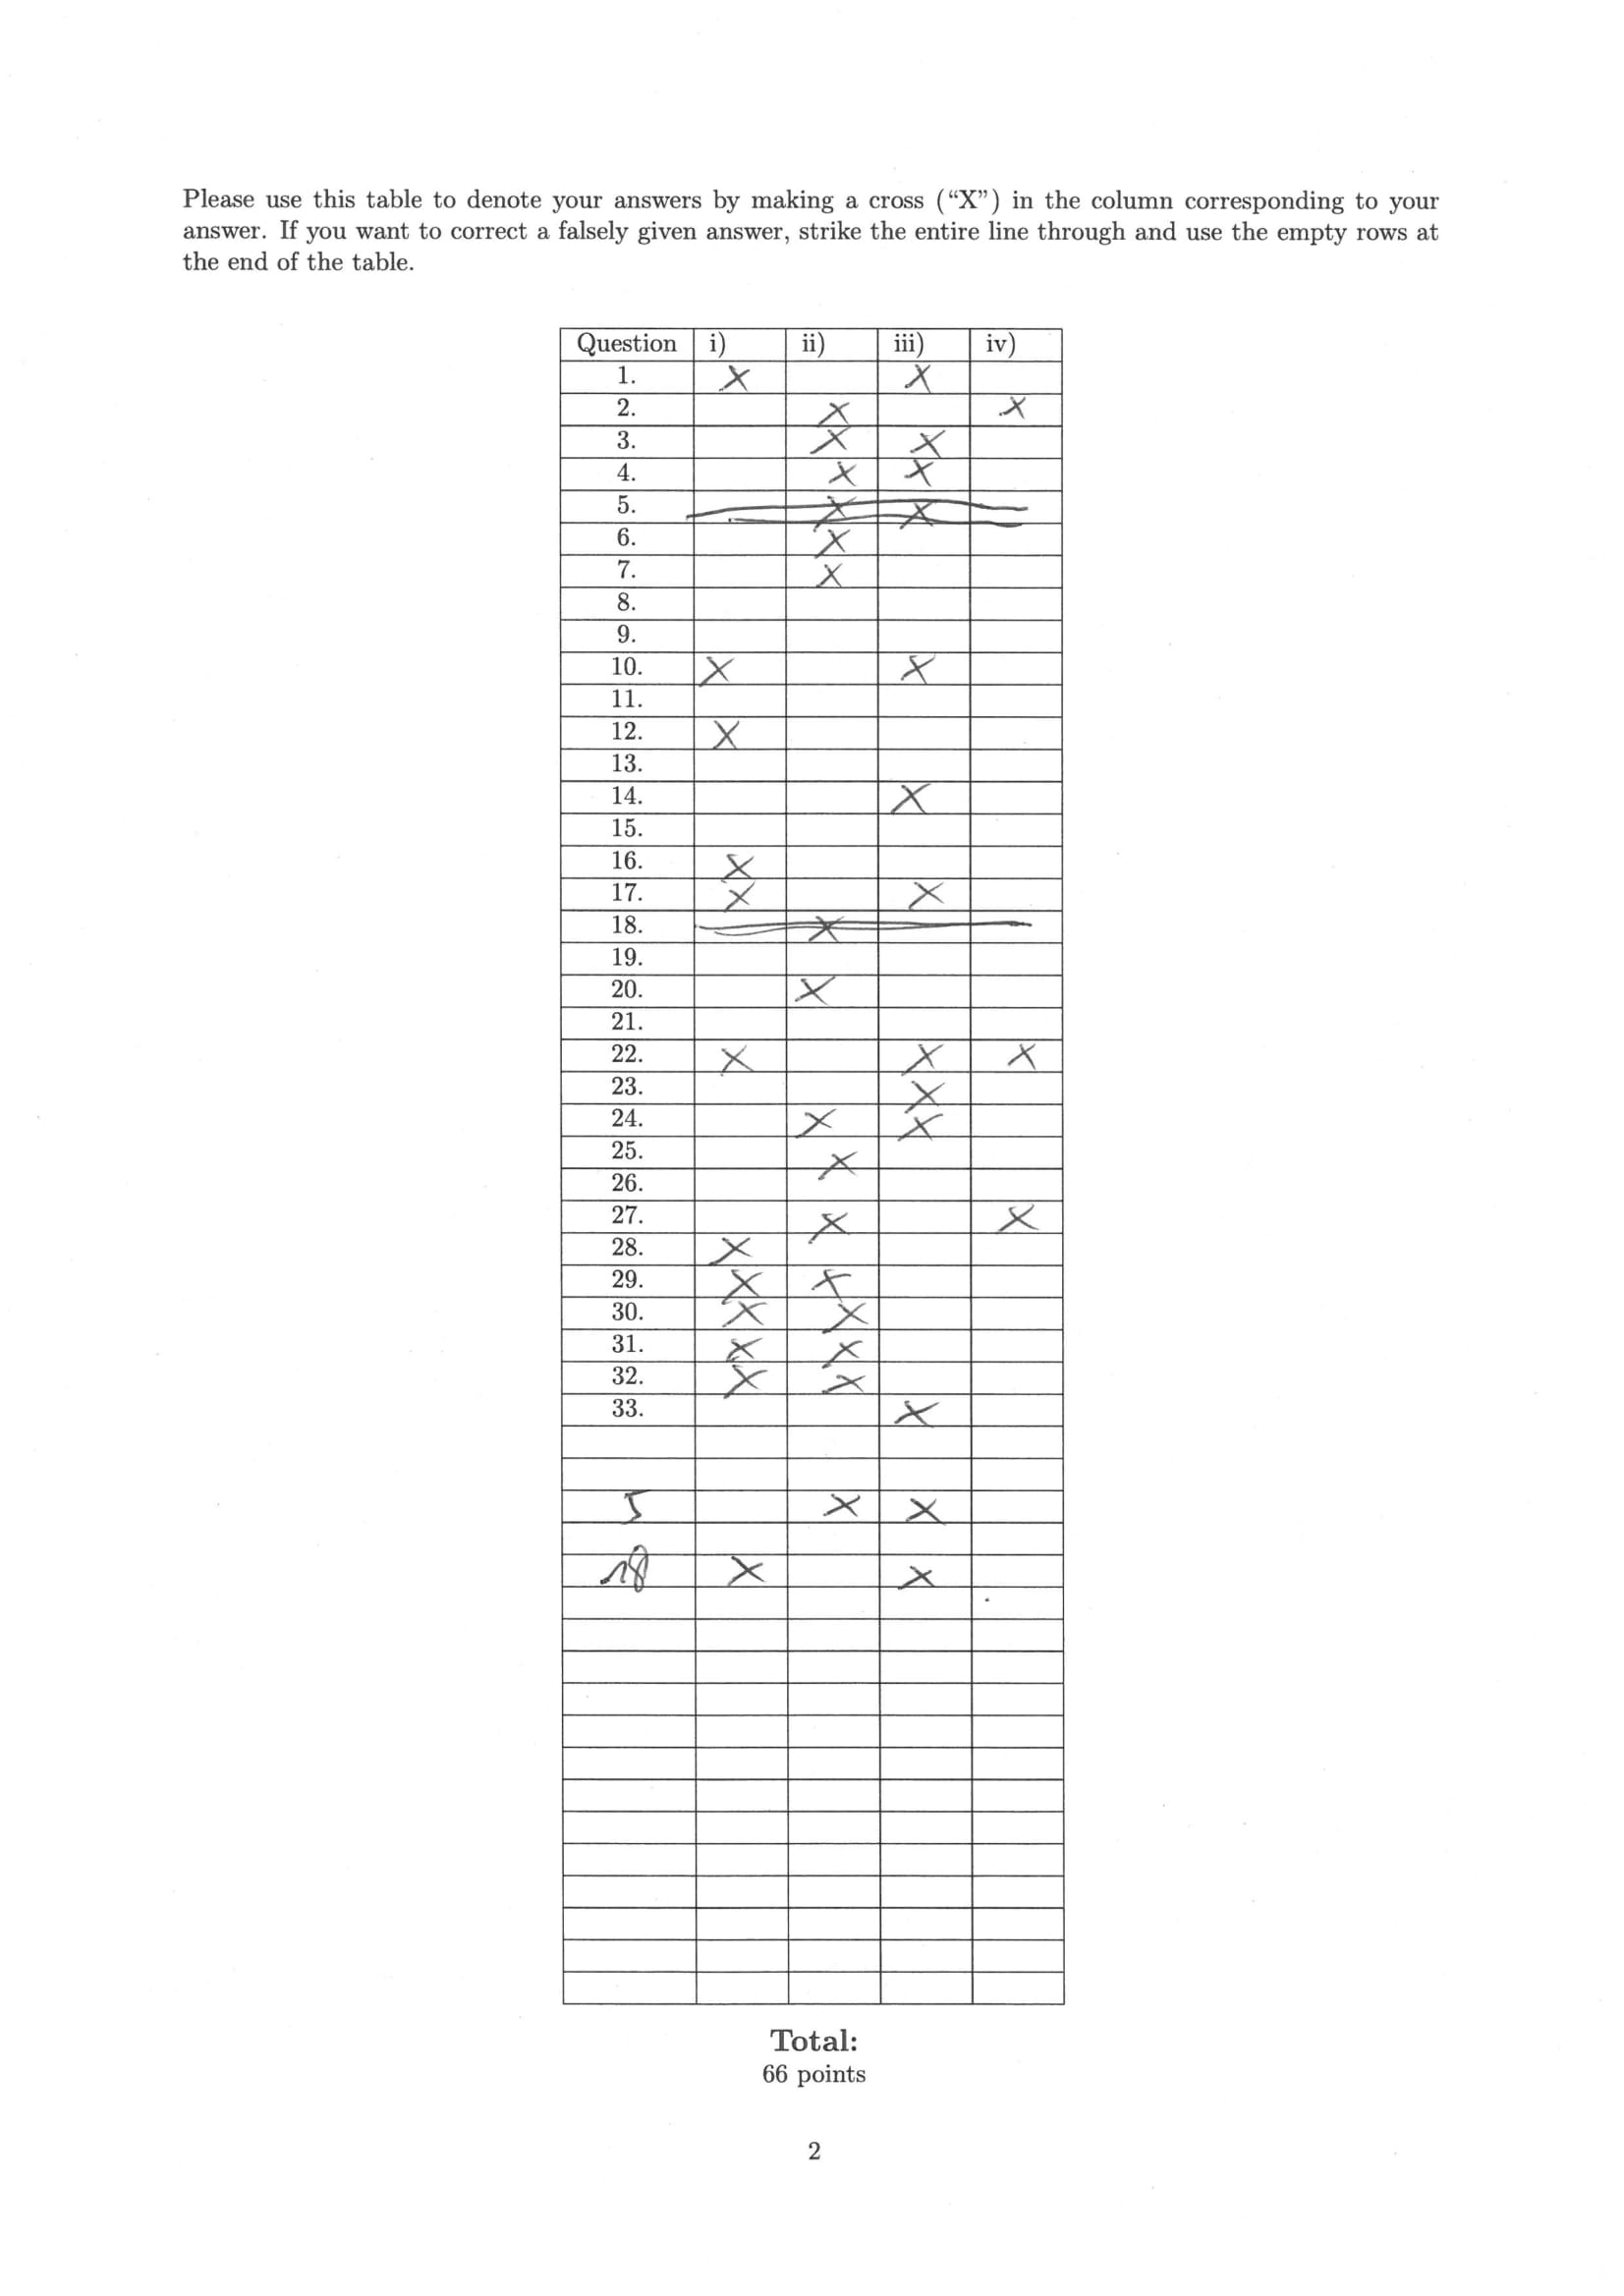 Please use this table to denote your answers by making a cross (“X”) in the column corresponding to your
answer. If you want to correct a falsely given answer, strike the entire line through and use the empty rows at
the end of the table.
Question i) ii) iii) iv)
1. X X
2. X X
3. X X
4. X X
5. X X
6. X
7. X
8.
9.
10. X X
11.
12. X
13.
14. X
15.
16. X
17. X X
18. X
19.
20. X
21.
22. X X X
23. X
24. X X
25. X
26.
27. X X
28. X
29. X X
30. X X
31. X X
32. X X
33. X
5 X X
18 X X
Total:
66 points
2